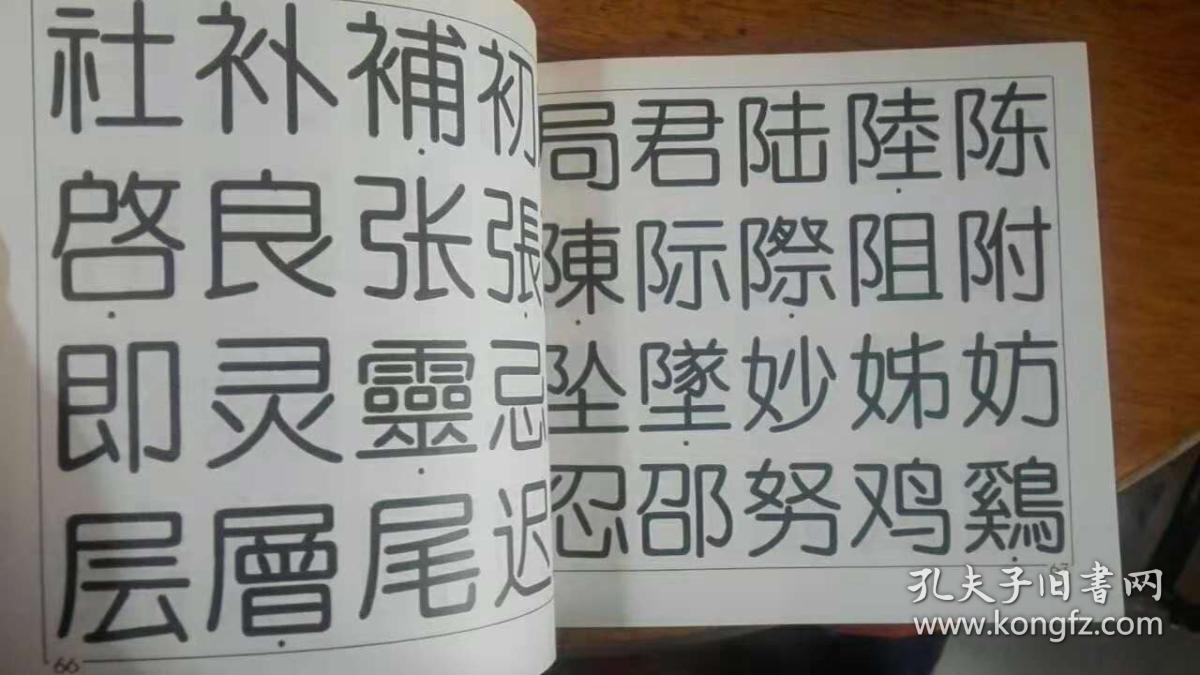 社补補初
啓良张張
即灵靈忌
层層尾迟
66
局君陆陸陈
陳际際阻附
坠墜妙姊妨
忍邵努鸡鷄
67
孔夫子旧書网
www.kongfz.com